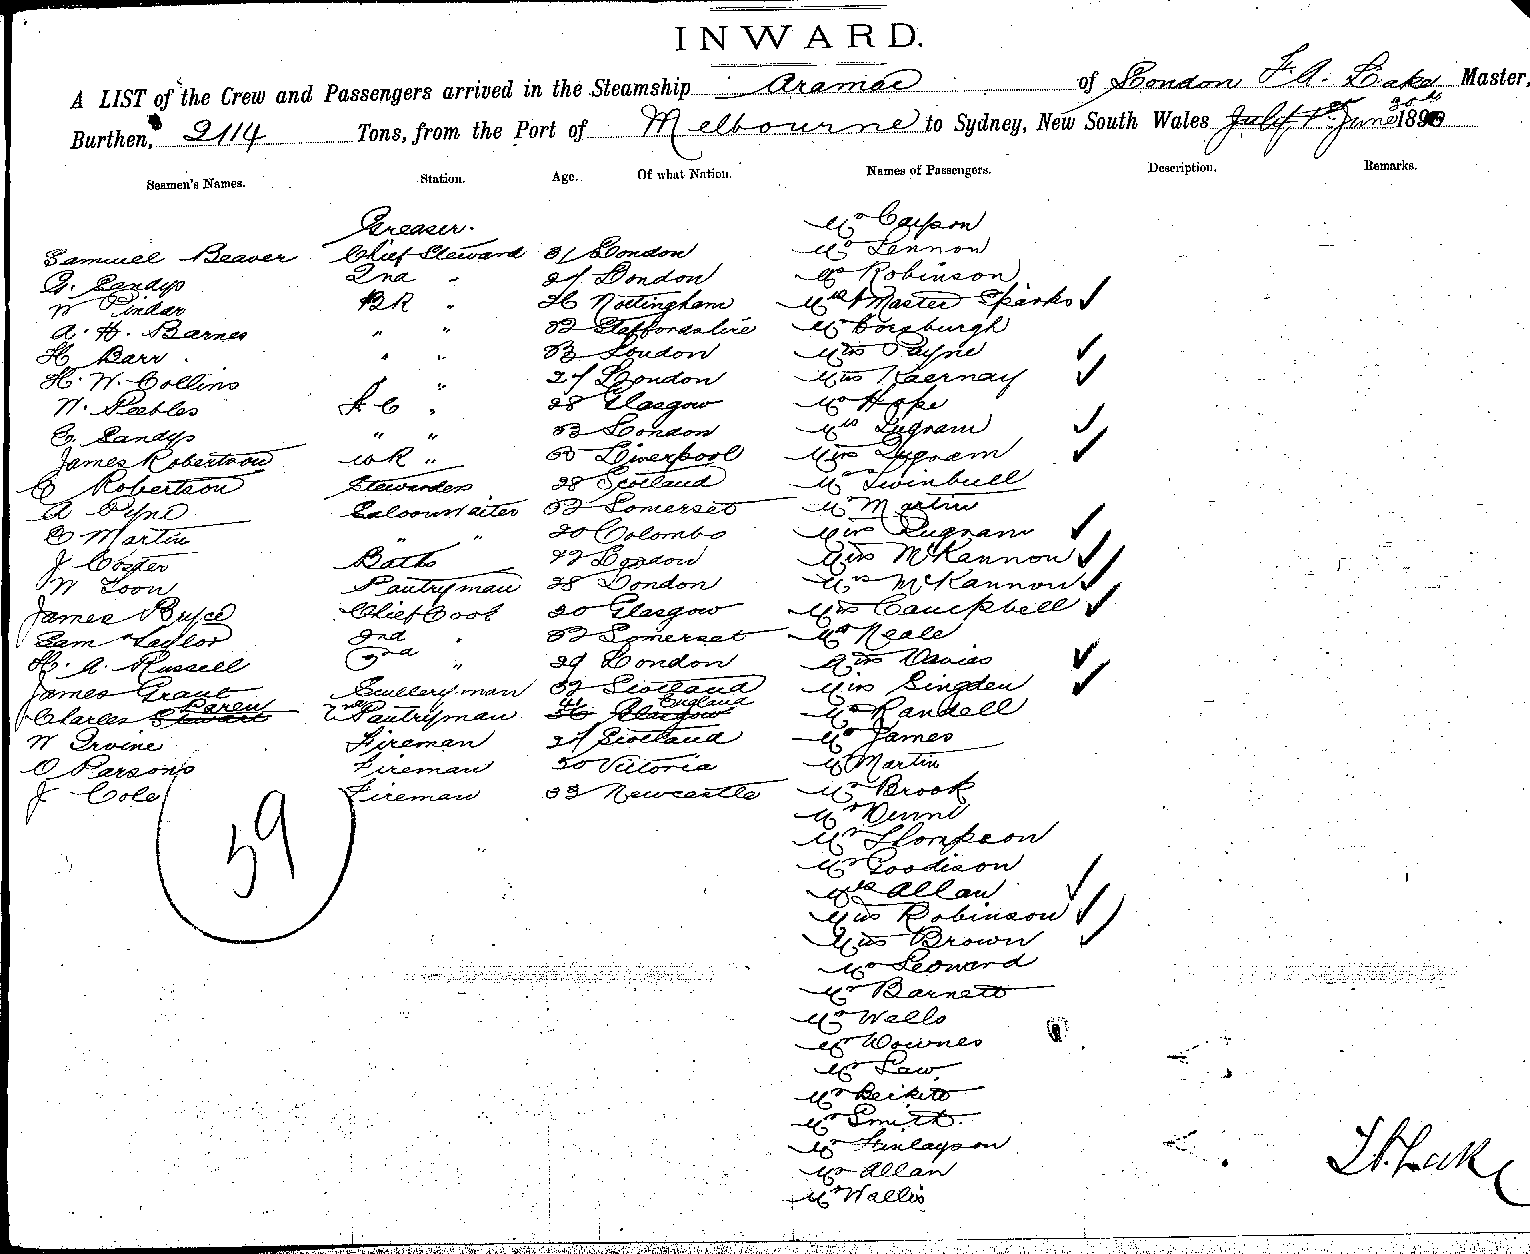 INWARD.
A LIST of the Crew and Passengers arrived in the Steamship Aramac of London F. A. Lake Master,
Burthen, 2114 Tons, from the Port of Melbourne to Sydney, New South Wales July 1st June 30th 1890
Seamen's Names. Station. Age. Of what Nation. Names of Passengers. Description. Remarks.
Greaser. Mr Carpson
Samuel Beaver Chief Steward 31 London Mr Lennon
G. Sandys 2nd " 27 London Mr Robinson
W Pindar BR " 36 Nottingham Mrs & Master Sparks ✓
A. H. Barnes " " 32 Staffordshire Mr Horsburgh
H Barr " " 33 London Miss Payne ✓
H. W. Collins " 27 London Miss Kaernay ✓
W. Peebles F C " 28 Glasgow Mr Hope
E. Sandys " " 33 London Mrs Lugram ✓
James Robertson WR " 35 Liverpool Miss Lugram ✓
C Robertson Stewardess 38 Scotland Mr Twinbull
A Pyne Saloon Waiter 32 Somerset Mr Martin
C Martin " " 20 Colombo Miss Lugram ✓
J Coster Baths 22 London Miss McKannon ✓
W Toon Pantryman 28 London Mrs McKannon ✓
James Bryce Chief Cook 30 Glasgow Miss Campbell ✓
Sam Taylor 2nd " 32 Somerset Mr Neale
H. A. Russell 3rd " 29 London Miss Davies ✓
James Grant Sculleryman 32 Scotland Miss Lingden ✓
Charles Stewart Paren 2nd Pantryman 36 41 Glasgow England Mr Randell
W Irvine Fireman 27 Scotland Mr James
O Parsons Fireman 30 Victoria Mr Martin
J Cole Fireman 33 Newcastle Mr Brook
Mr Dunne
59 Mr Thompson
Mr Goodison
Mrs Allan ✓
Miss Robinson ✓
Miss Brown ✓
Mr Leonard
Mr Barnett
Mr Wells
Mr Downes
Mr Law
Mr Smith
Mr Finlayson
Mr Allan
Mr Wallis
F. A. Lake